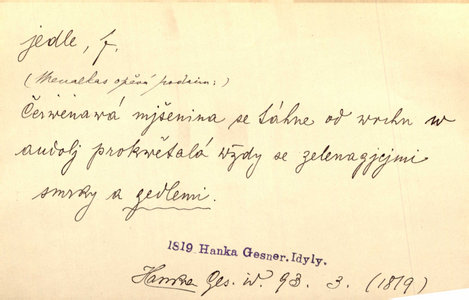 jedle, f.
(Menalkas opěvá podzim:)
Čerwenawá mjšenina se táhne od wrchu w
audolj prokwětalá wždy se zelenagjcjmi
smrky a gedlemi.
1819 Hanka Gesner. Idyly.
Hanka Ges. iv. 93. 3. (1819)